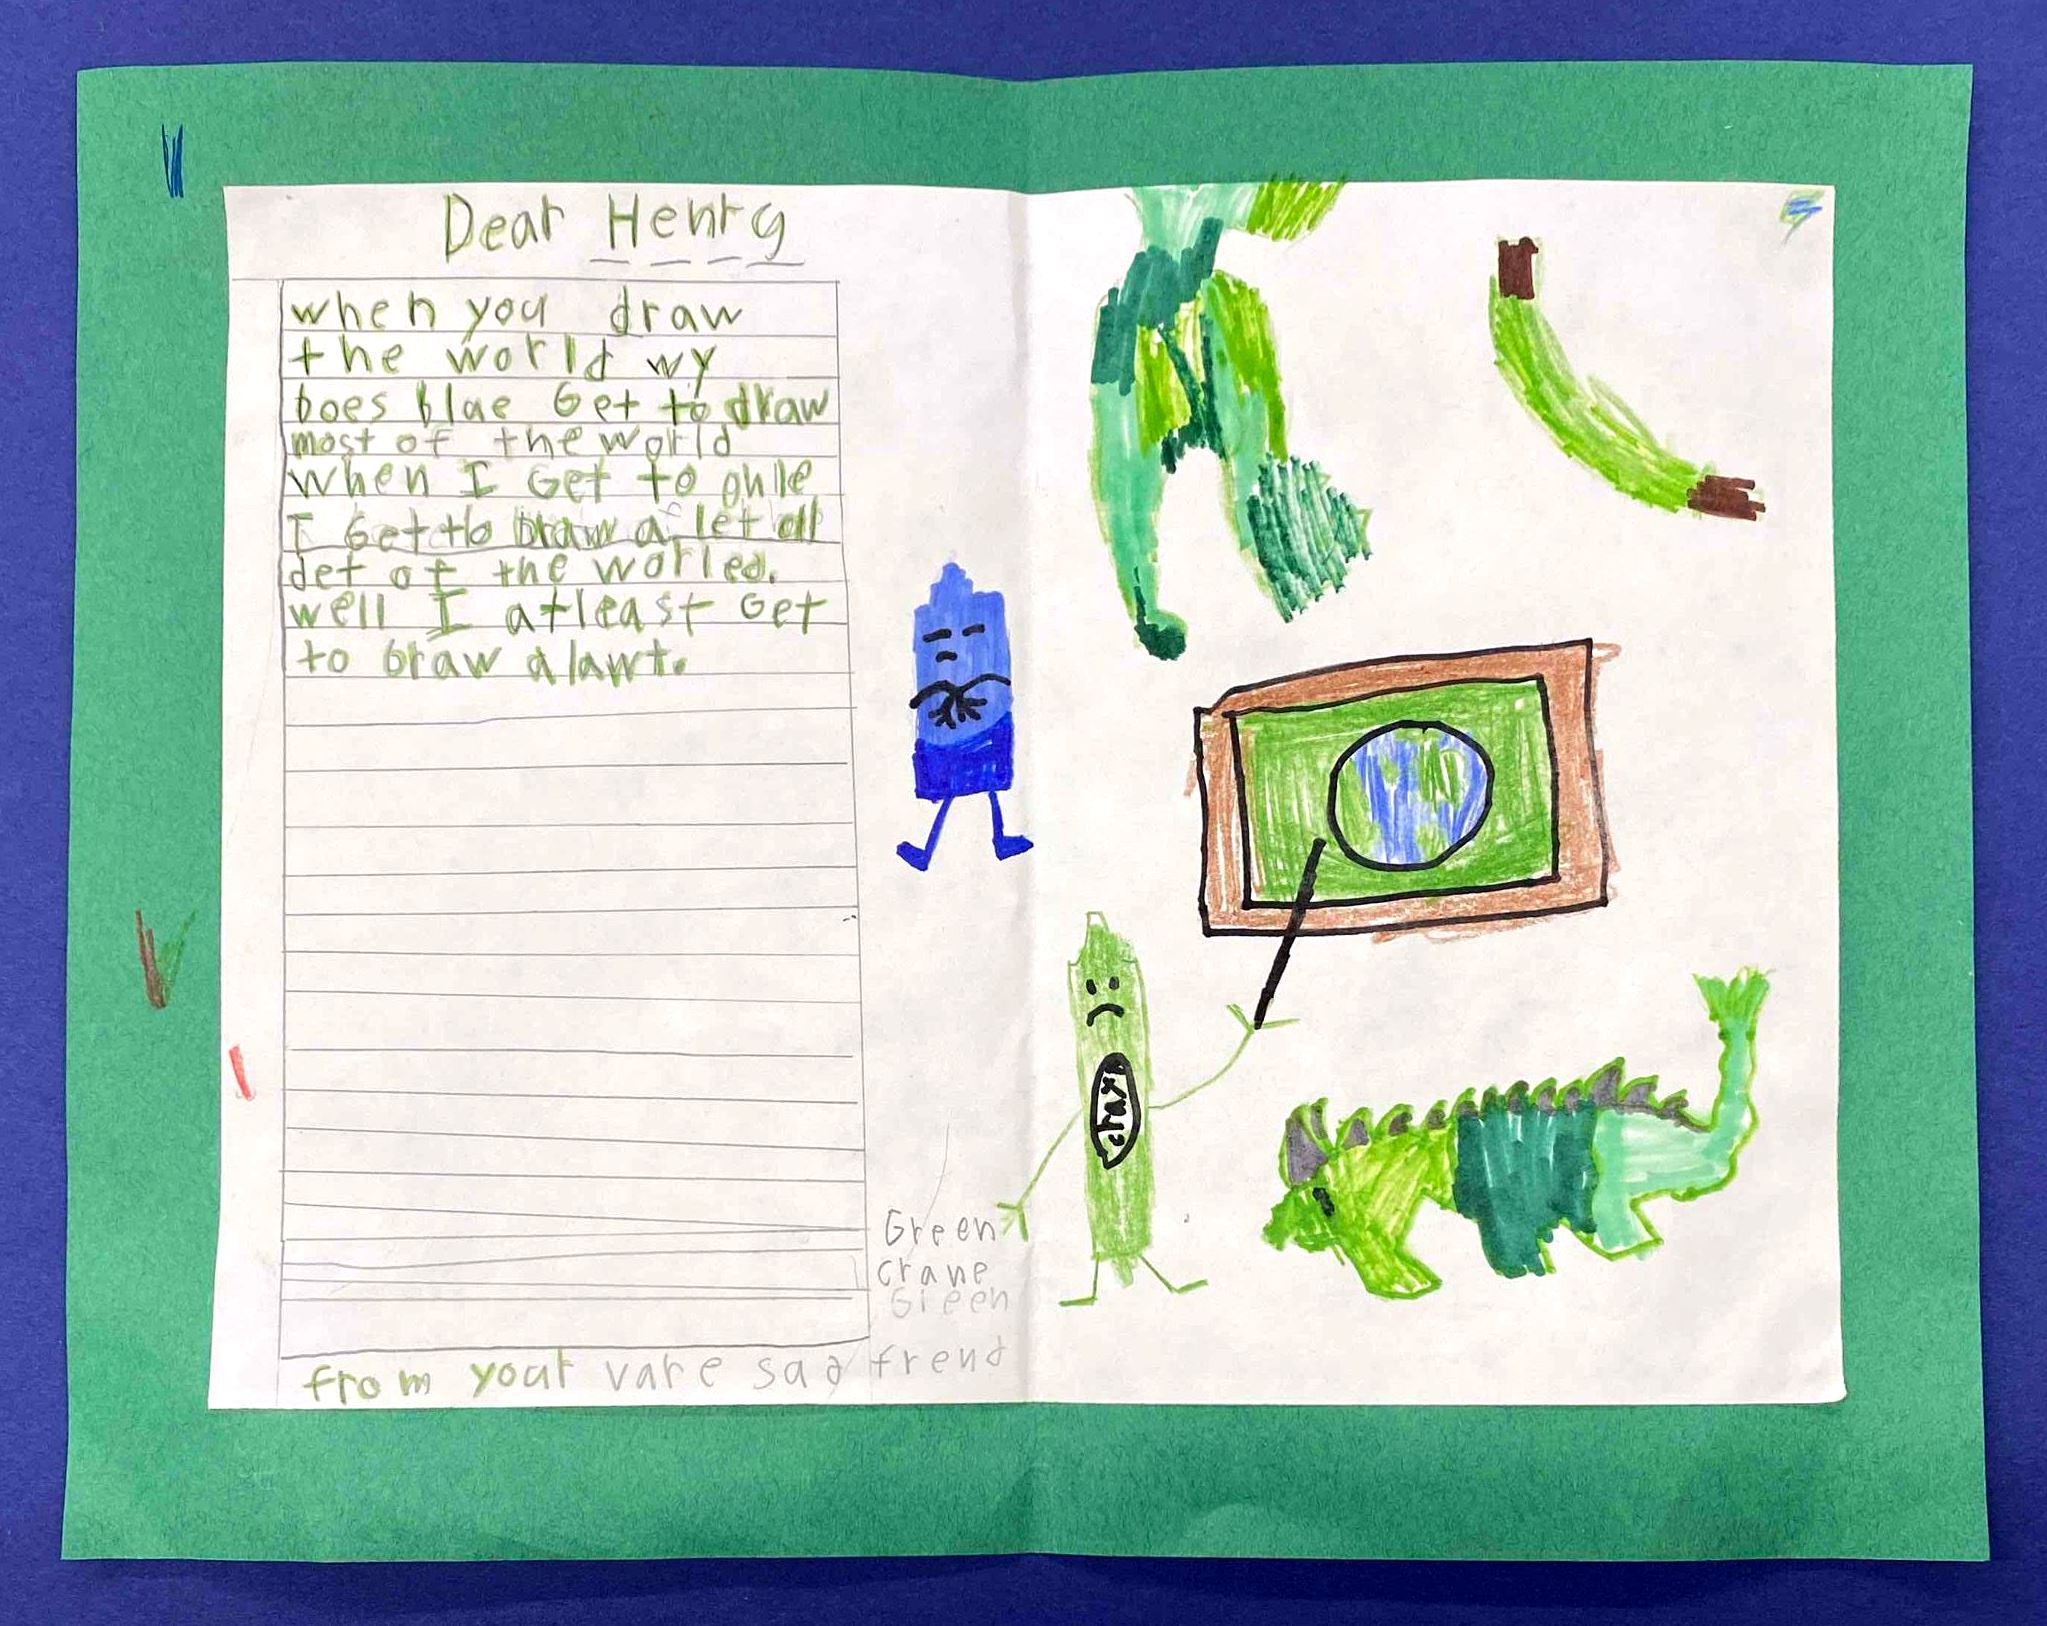 Dear Henry
when you draw
the world wy
does blue Get to draw
most of the world
when I Get to onle
I Get to Draw a let oll
det of the worled.
well I atleast Get
to Graw a lawt.
Green
crane
Green
from your vare sad frend
crax